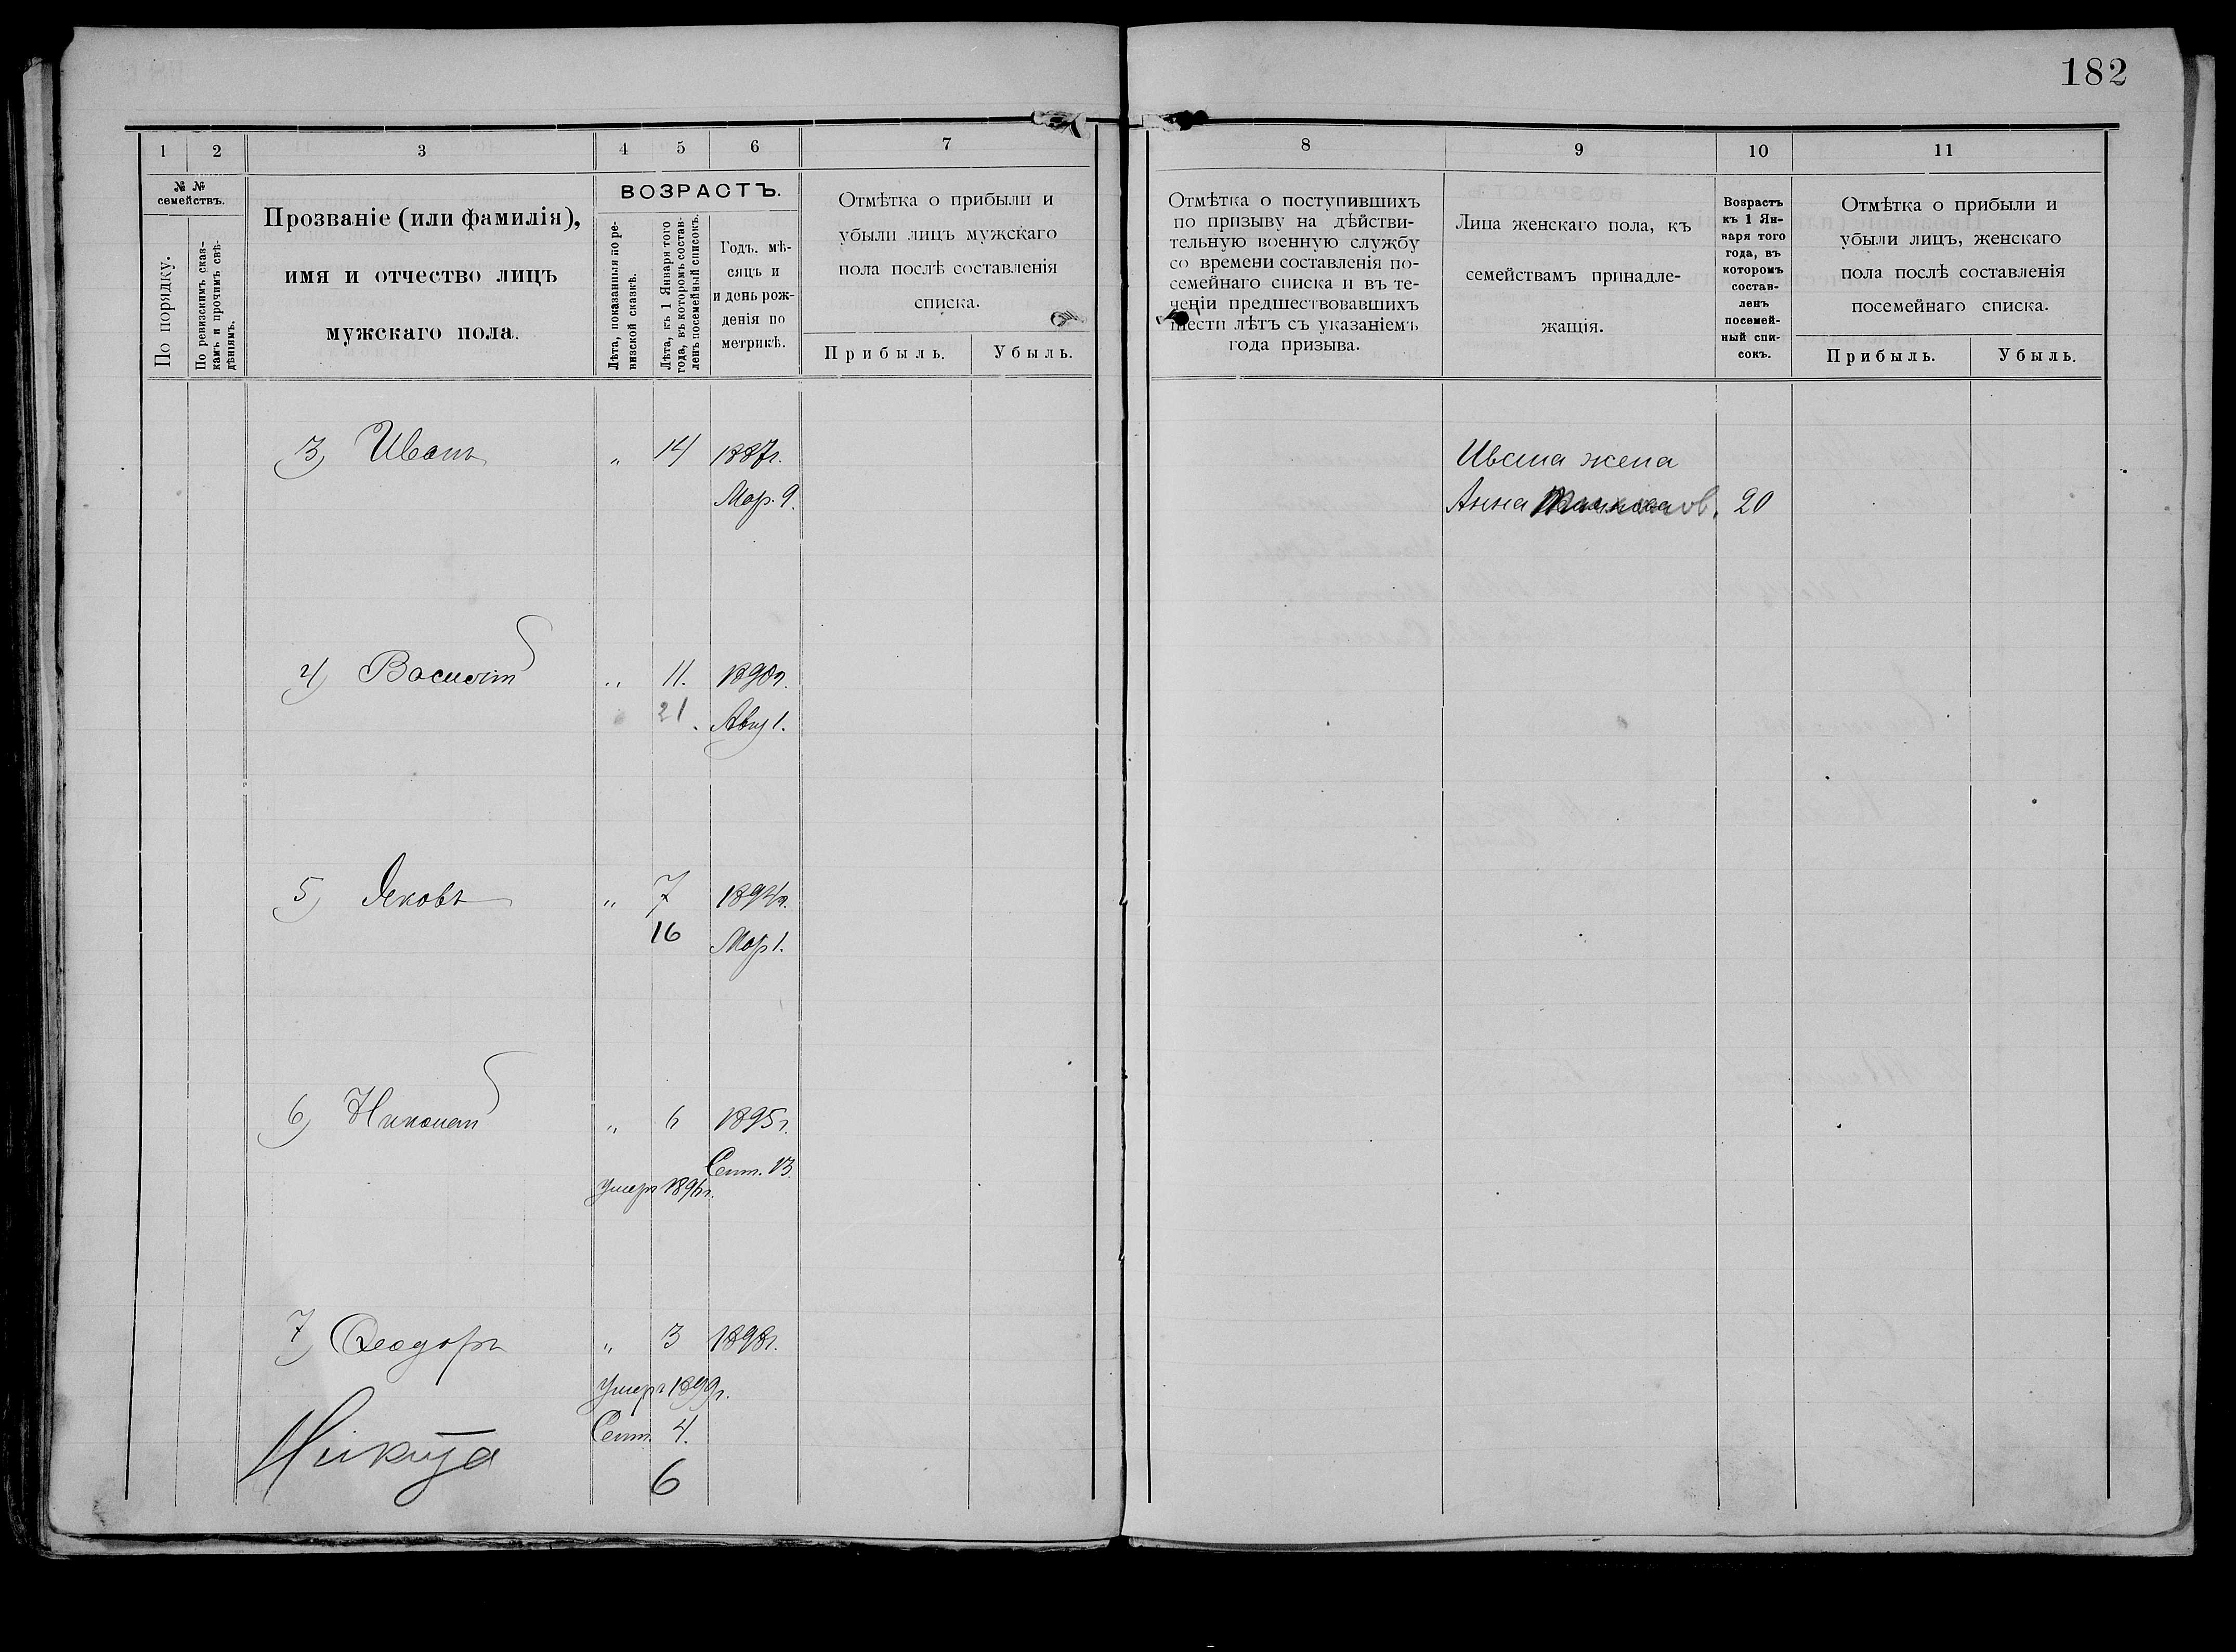 182
1 2 3 4 5 6 7
№ № семействъ.
По порядку.
По ревизскимъ сказ-
камъ и прочимъ свѣ-
дѣніямъ.
Прозваніе (или фамилія),
имя и отчество лицъ
мужскаго пола.
ВОЗРАСТЪ.
Лѣта, показанныя по ре-
визской сказкѣ.
Лѣта, къ 1 Января того
года, въ которомъ состав-
ленъ посемейный списокъ.
Годъ, мѣ-
сяцъ и
и день рож-
денія по
метрикѣ.
Отмѣтка о прибыли и
убыли лицъ мужскаго
пола послѣ составленія
списка.
Прибыль. Убыль.
3) Иванъ „ 14 1887г.
Мар. 9.
4) Василій „ 11. 1890г.
21. Авг 1.
5) Яковъ „ 7 1894г.
16 Мар 1.
6) Николай „ 6 1895г.
Сент. 13.
умеръ 1896г.
7) Ѳеодоръ „ 3 1898г.
умеръ 1899г.
Сент. 4.
Никита 6
8 9 10 11
Отмѣтка о поступившихъ
по призыву на дѣйстви-
тельную военную службу
со времени составленія по-
семейнаго списка и въ те-
ченіи предшествовавшихъ
шести лѣтъ съ указаніемъ
года призыва.
Лица женскаго пола, къ
семействамъ принадле-
жащія.
Возрастъ
къ 1 Ян-
варя того
года, въ
которомъ
состав-
ленъ
посемей-
ный спи-
сокъ.
Отмѣтка о прибыли и
убыли лицъ, женскаго
пола послѣ составленія
посемейнаго списка.
Прибыль. Убыль.
Ивана жена
Анна 20